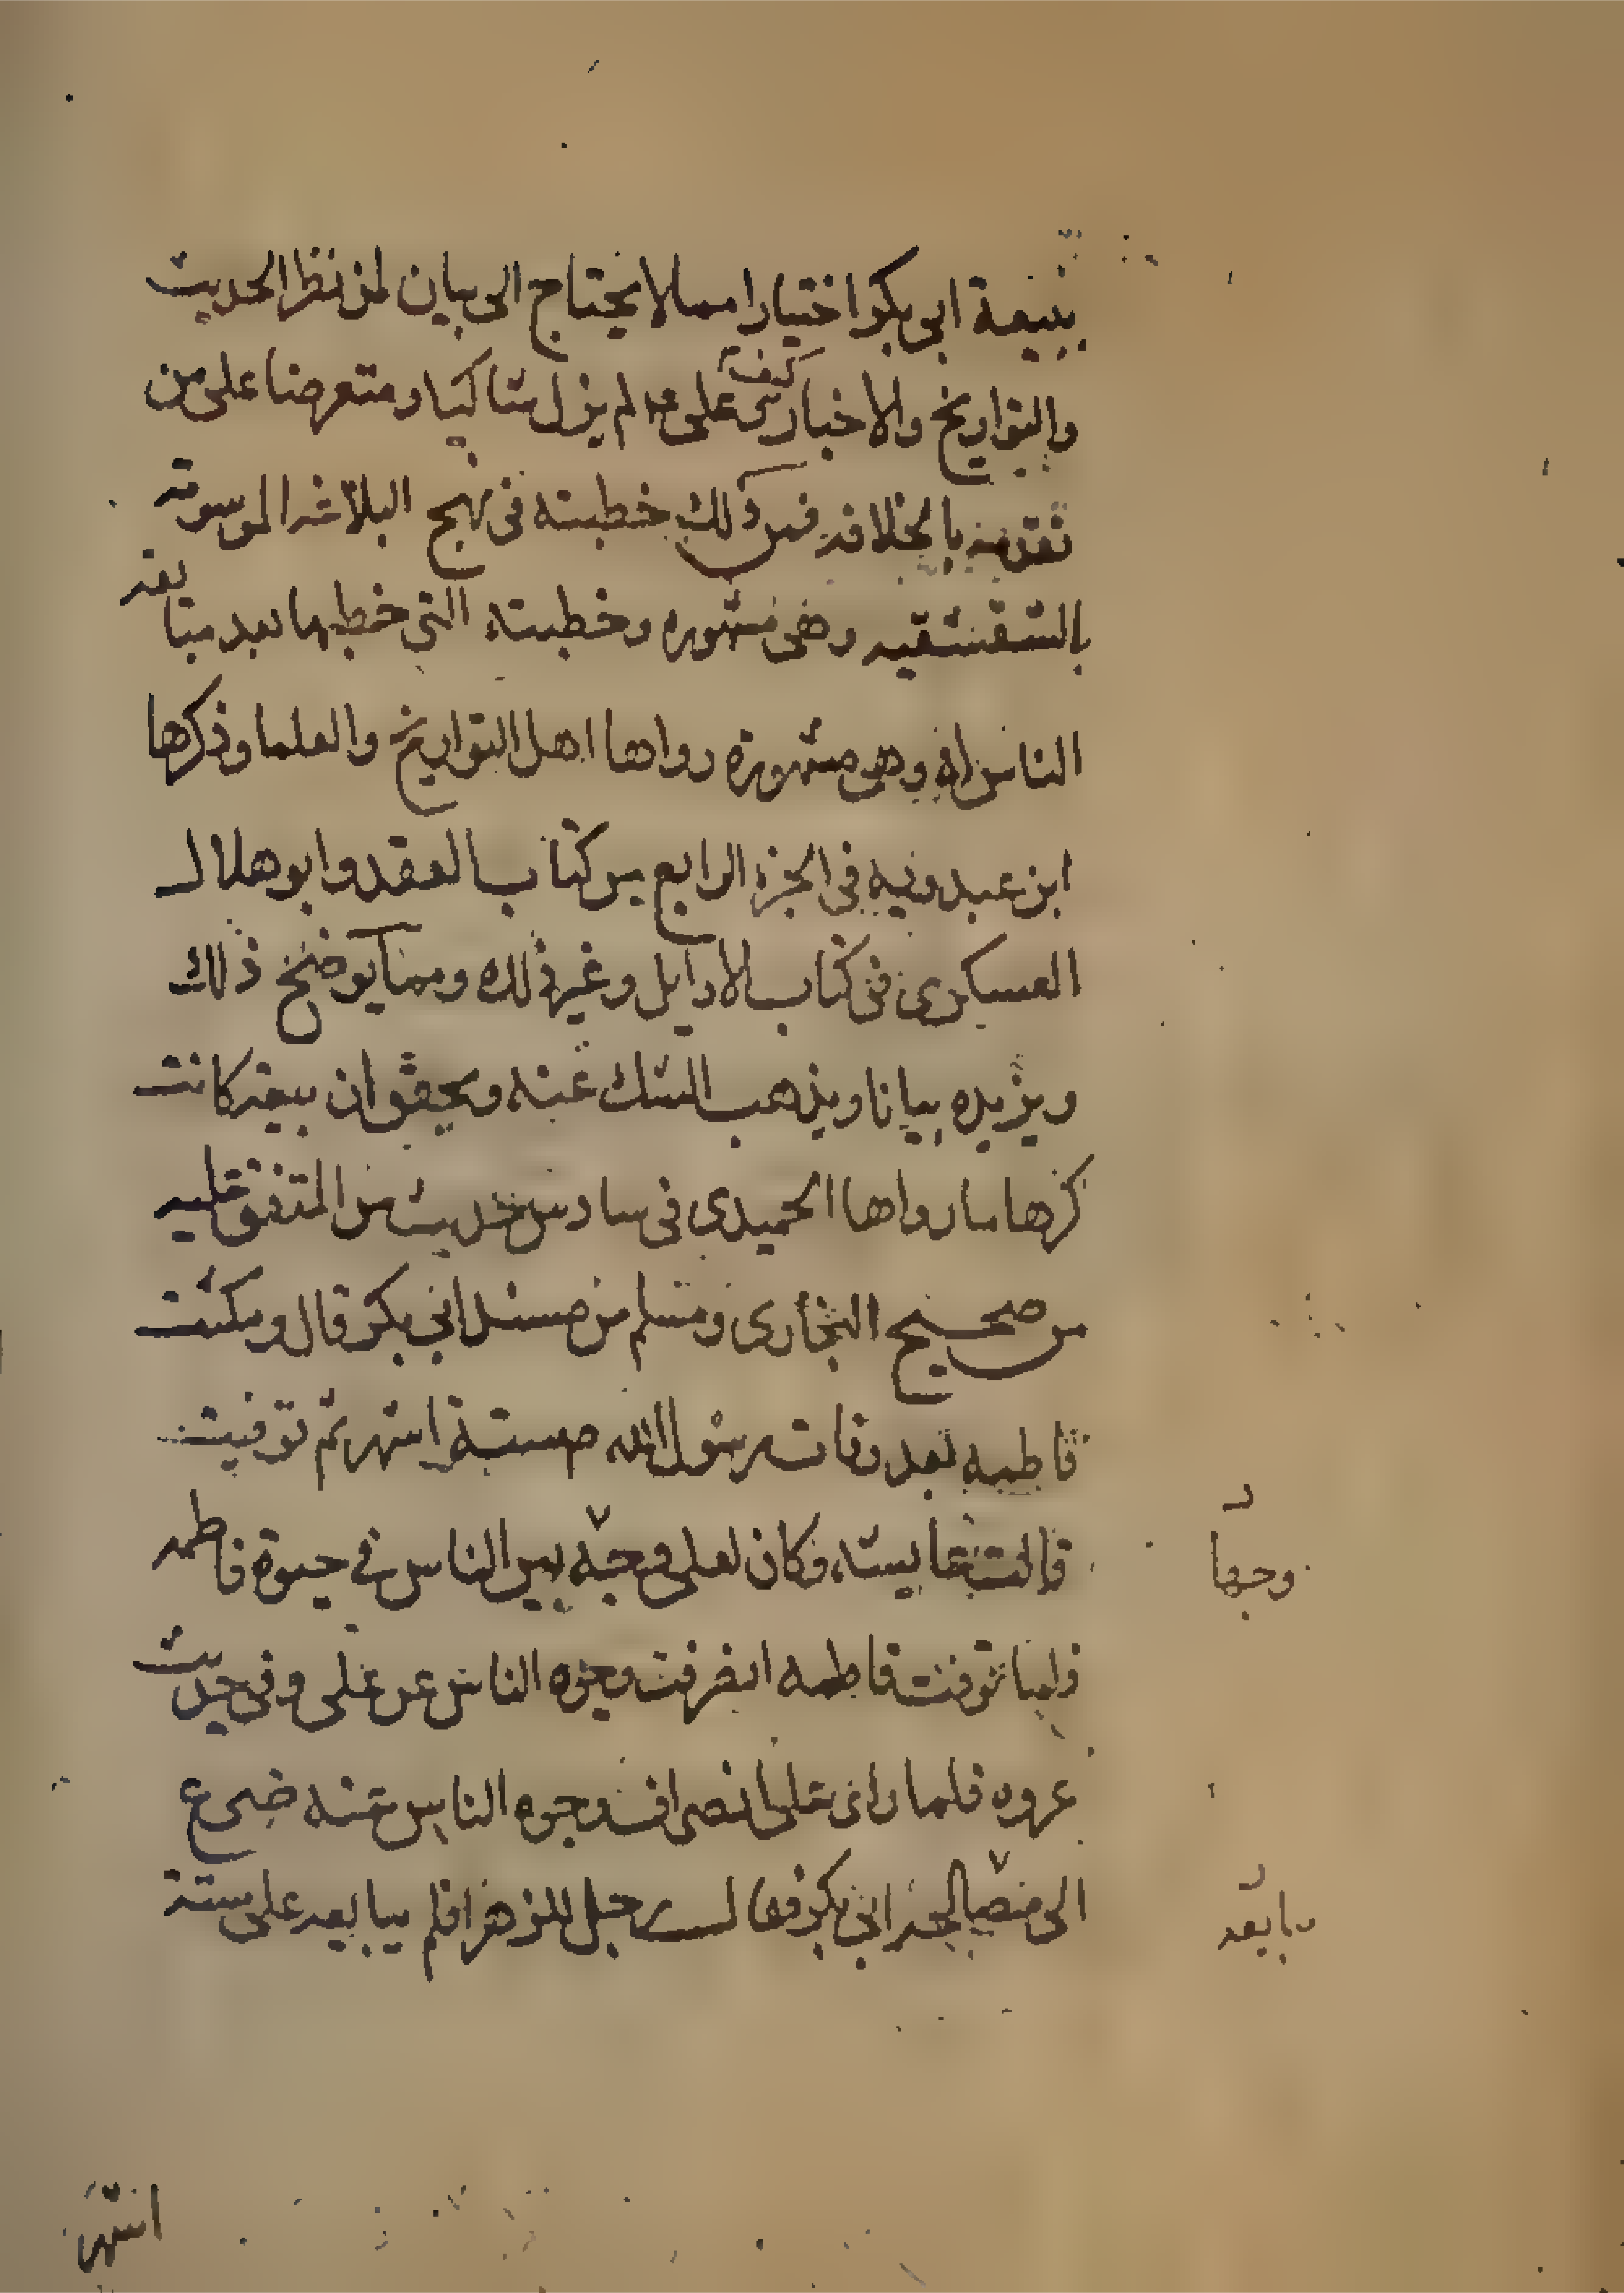 ببيعة ابى بكر اختيارا مما لا يحتاج الى بيان لمن نظر الحديث
والتواريخ والاخبار كيف على عم لم يزل متاكيا ومتعرضا على من
تقدمه بالخلافه فمن ذلك خطبته فى نهج البلاغه الموسومه
بالشقشقيه وهى مشهوره وخطبته التى خطبها بعد مبايعه
الناس له وهى مشهورة رواها اهل التواريخ والعلما وذكرها
ابن عبد ربه فى الجزء الرابع من كتاب العقد وابو هلال
العسكرى فى كتاب الاوايل وغير ذلك ومما يوضح ذلك
ويزيده بيانا ويذهب الشك عنه ويحقق ان بيعته كانت
كرها ما رواها الحميدى فى سادس حديث من المتفق عليه
من صحيح البخارى ومسلم من مسند ابى بكر قال ومكثت
فاطمه بعد وفات رسول الله ص ستة اشهر ثم توفيت
قالت عايشه فكان لعلى وجه بين الناس فى حيوة فاطمه
وجهها
فلما توفت فاطمه انصرفت وجوه الناس عن على وفى حديث
عروه فلما راى على انصراف وجوه الناس عنه ضرع
الى مصالحه ابى بكر فقال رجل للزهرى فلم يبايعه على ستة
مبايعه
اشهر